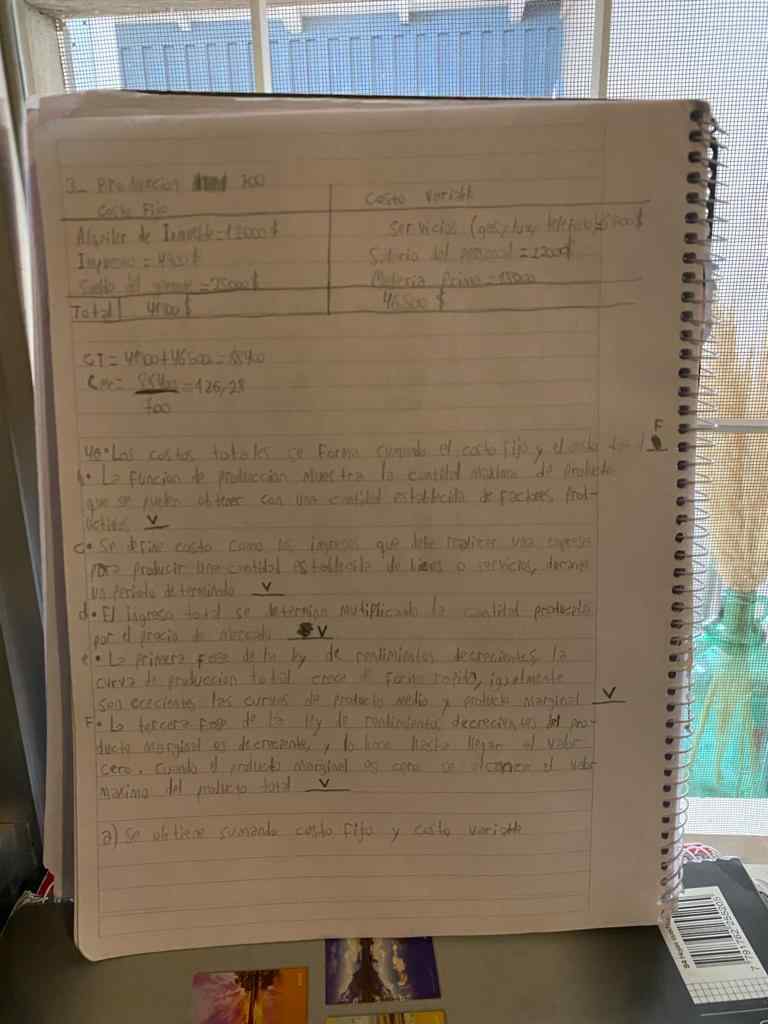 3_ Produccion 700
Costo Fijo
Costo Variable
Alquiler de Inmueble=12000$
Servicios (gas, luz, telefono)
Impuesto = 4900$
Salario del personal = 22000$
Sueldo del gerente = 25000$
Materia Prima = 18000
Total 41900$
46500 $
CT = 41900+46500=88400
= 88400 = 126,28
700
4a• Los costos totales se forma sumando el costo fijo y el costo total F
b• La funcion de produccion muestra la cantidad maxima de producto
que se pueden obtener con una cantidad establecida de factores prod-
uctivos V
c• Se define costo como los ingresos que debe realizar una empresa
para producir una cantidad establecida de bienes o servicios, durante
un periodo determinado V
d• El ingreso total se determina multiplicando la cantidad producida
por el precio de mercado V
e• La primera fase de la ley de rendimientos decrecientes, la
curva de produccion total crece de forma rapida, igualmente
son crecientes las curvas de producto medio y producto marginal V
F• La tercera fase de la ley de rendimiento decrecientes del pro-
ducto marginal es decreciente, y lo hace hasta llegar al valor
cero. Cuando el producto marginal es cero se alcanza el valor
maximo del producto total V
a) se obtiene sumando costo fijo y costo variable